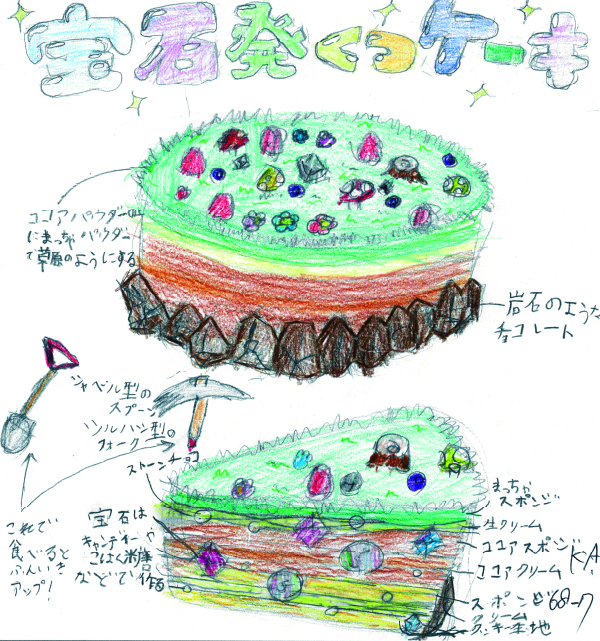 宝石発くつケーキ
ココアパウダーの上
にまっちゃパウダー
で草原のようにする
岩石のような
チョコレート
シャベル型の
スプーン
ツルハシ型の
フォーク
ストーンチョコ
これで
食べると
ふんいき
アップ!
宝石は
キャンディーや
こはく糖
などで作る
まっちゃ
スポンジ
生クリーム
ココアスポンジ
ココアクリーム
スポンジ
クリーム
クッキー生地
K.A.
68-7